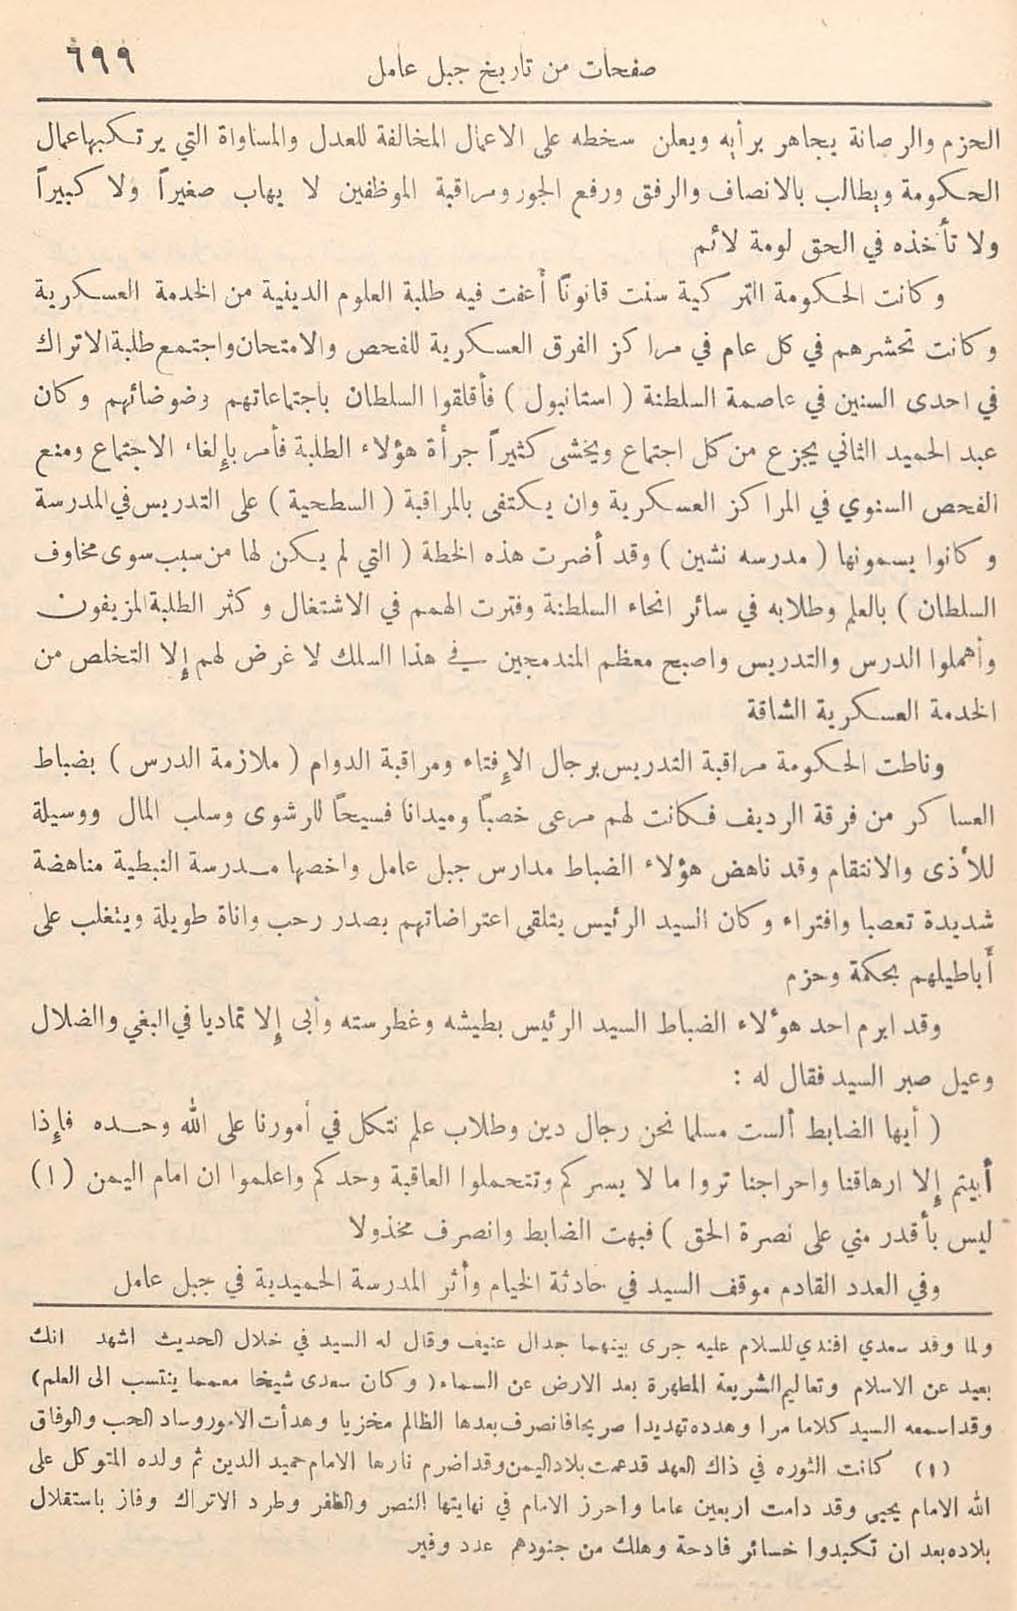 صفحات من تاريخ جبل عامل
٦٩٩
الحزم والرصانة يجاهر برأيه ويعلن سخطه على الاعمال المخالفة للعدل والمساواة التي يرتكبها عمال
الحكومة ويطالب بالانصاف والرفق ورفع الجور ومراقبة الموظفين لا يهاب صغيراً ولا كبيراً
ولا تأخذه في الحق لومة لائم
وكانت الحكومة التركية سنت قانونًا أعفت فيه طلبة العلوم الدينية من الخدمة العسكرية
وكانت تحشرهم في كل عام في مراكز الفرق العسكرية للفحص والامتحان واجتمع طلبة الاتراك
في احدى السنين في عاصمة السلطنة ( استانبول ) فأقلقوا السلطان باجتماعاتهم وضوضائهم وكان
عبد الحميد الثاني يجزع من كل اجتماع ويخشى كثيراً جرأة هؤلاء الطلبة فأمر بإلغاء الاجتماع ومنع
الفحص السنوي في المراكز العسكرية وان يكتفى بالمراقبة ( السطحية ) على التدريس في المدرسة
وكانوا يسمونها ( مدرسه نشين ) وقد أضرت هذه الخطة ( التي لم يكن لها من سبب سوى مخاوف
السلطان ) بالعلم وطلابه في سائر انحاء السلطنة وفترت الهمم في الاشتغال وكثر الطلبة المزيفون
وأهملوا الدرس والتدريس واصبح معظم المندمجين في هذا السلك لا غرض لهم إلا التخلص من
الخدمة العسكرية الشاقة
وناطت الحكومة مراقبة التدريس برجال الإفتاء ومراقبة الدوام ( ملازمة الدرس ) بضباط
العساكر من فرقة الرديف فكانت لهم مرعى خصبًا وميدانا فسيحًا للرشوى وسلب المال ووسيلة
للأذى والانتقام وقد ناهض هؤلاء الضباط مدارس جبل عامل واخصها مدرسة النبطية مناهضة
شديدة تعصبا وافتراء وكان السيد الرئيس يتلقى اعتراضاتهم بصدر رحب واناة طويلة ويتغلب على
أباطيلهم بحكمة وحزم
وقد ابرم احد هؤلاء الضباط السيد الرئيس بطيشه وغطرسته وأبى إلا تماديا في البغي والضلال
وعيل صبر السيد فقال له :
( أيها الضابط ألست مسلما نحن رجال دين وطلاب علم نتكل في أمورنا على الله وحده فإذا
أبيتم إلا ارهاقنا واحراجنا تروا ما لا يسركم وتتحملوا العاقبة وحدكم واعلموا ان امام اليمن (١)
ليس بأقدر مني على نصرة الحق ) فبهت الضابط وانصرف مخذولا
وفي العدد القادم موقف السيد في حادثة الخيام وأثر المدرسة الحميدية في جبل عامل
ولما وفد سعدي افندي للسلام عليه جرى بينهما جدال عنيف وقال له السيد في خلال الحديث اشهد انك
بعيد عن الاسلام وتعاليم الشريعة المطهرة بعد الارض عن السماء ( وكان سعدى شيخا معمما ينتسب الى العلم)
وقد اسمعه السيد كلاما مرا وهدده تهديدا صريحا فانصرف بعدها الظالم مخزيا وهدأت الامور وساد الحب والوفاق
(١) كانت الثوره في ذاك العهد قد عمت بلاد اليمن وقد اضرم نارها الامام حميد الدين ثم ولده المتوكل على
الله الامام يحيى وقد دامت اربعين عاما واحرز الامام في نهايتها النصر والظفر وطرد الاتراك وفاز باستقلال
بلاده بعد ان تكبدوا خسائر فادحة وهلك من جنودهم عدد وفير